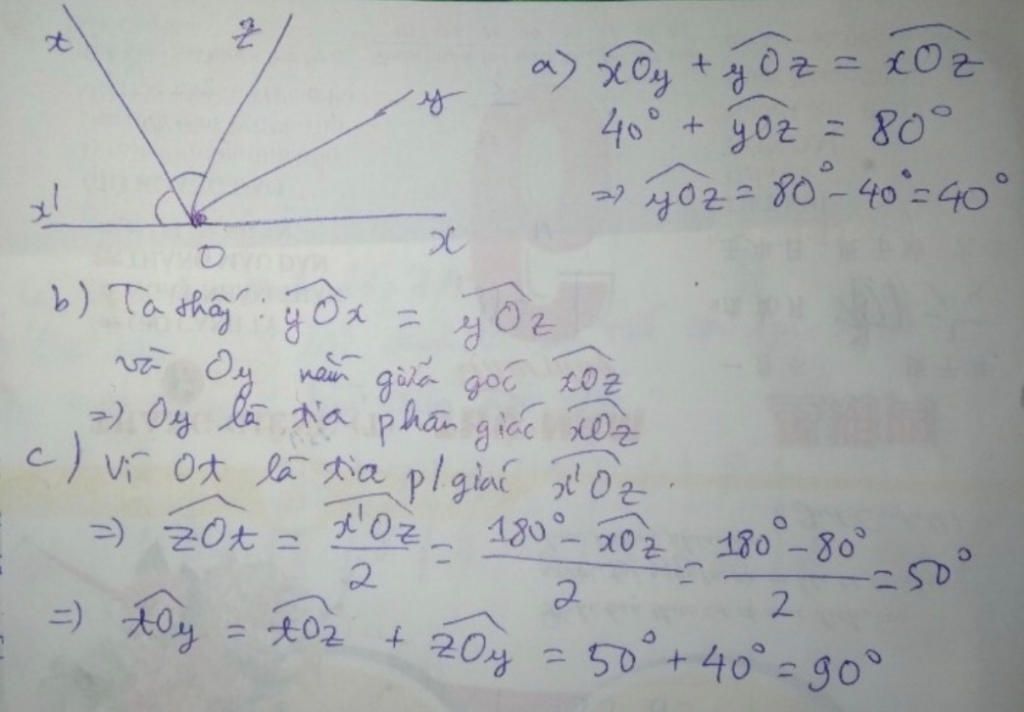 t
z
y
x'
O
x
a) xOy + yOz = xOz
40° + yOz = 80°
=> yOz = 80° - 40° = 40°
b) Ta thấy: yOx = yOz
và Oy nằm giữa góc xOz
=> Oy là tia phân giác xOz
c) Vì Ot là tia p/giác x'Oz.
=> zOt = x'Oz/2 = (180° - xOz)/2 = (180° - 80°)/2 = 50°
=> tOy = tOz + zOy = 50° + 40° = 90°